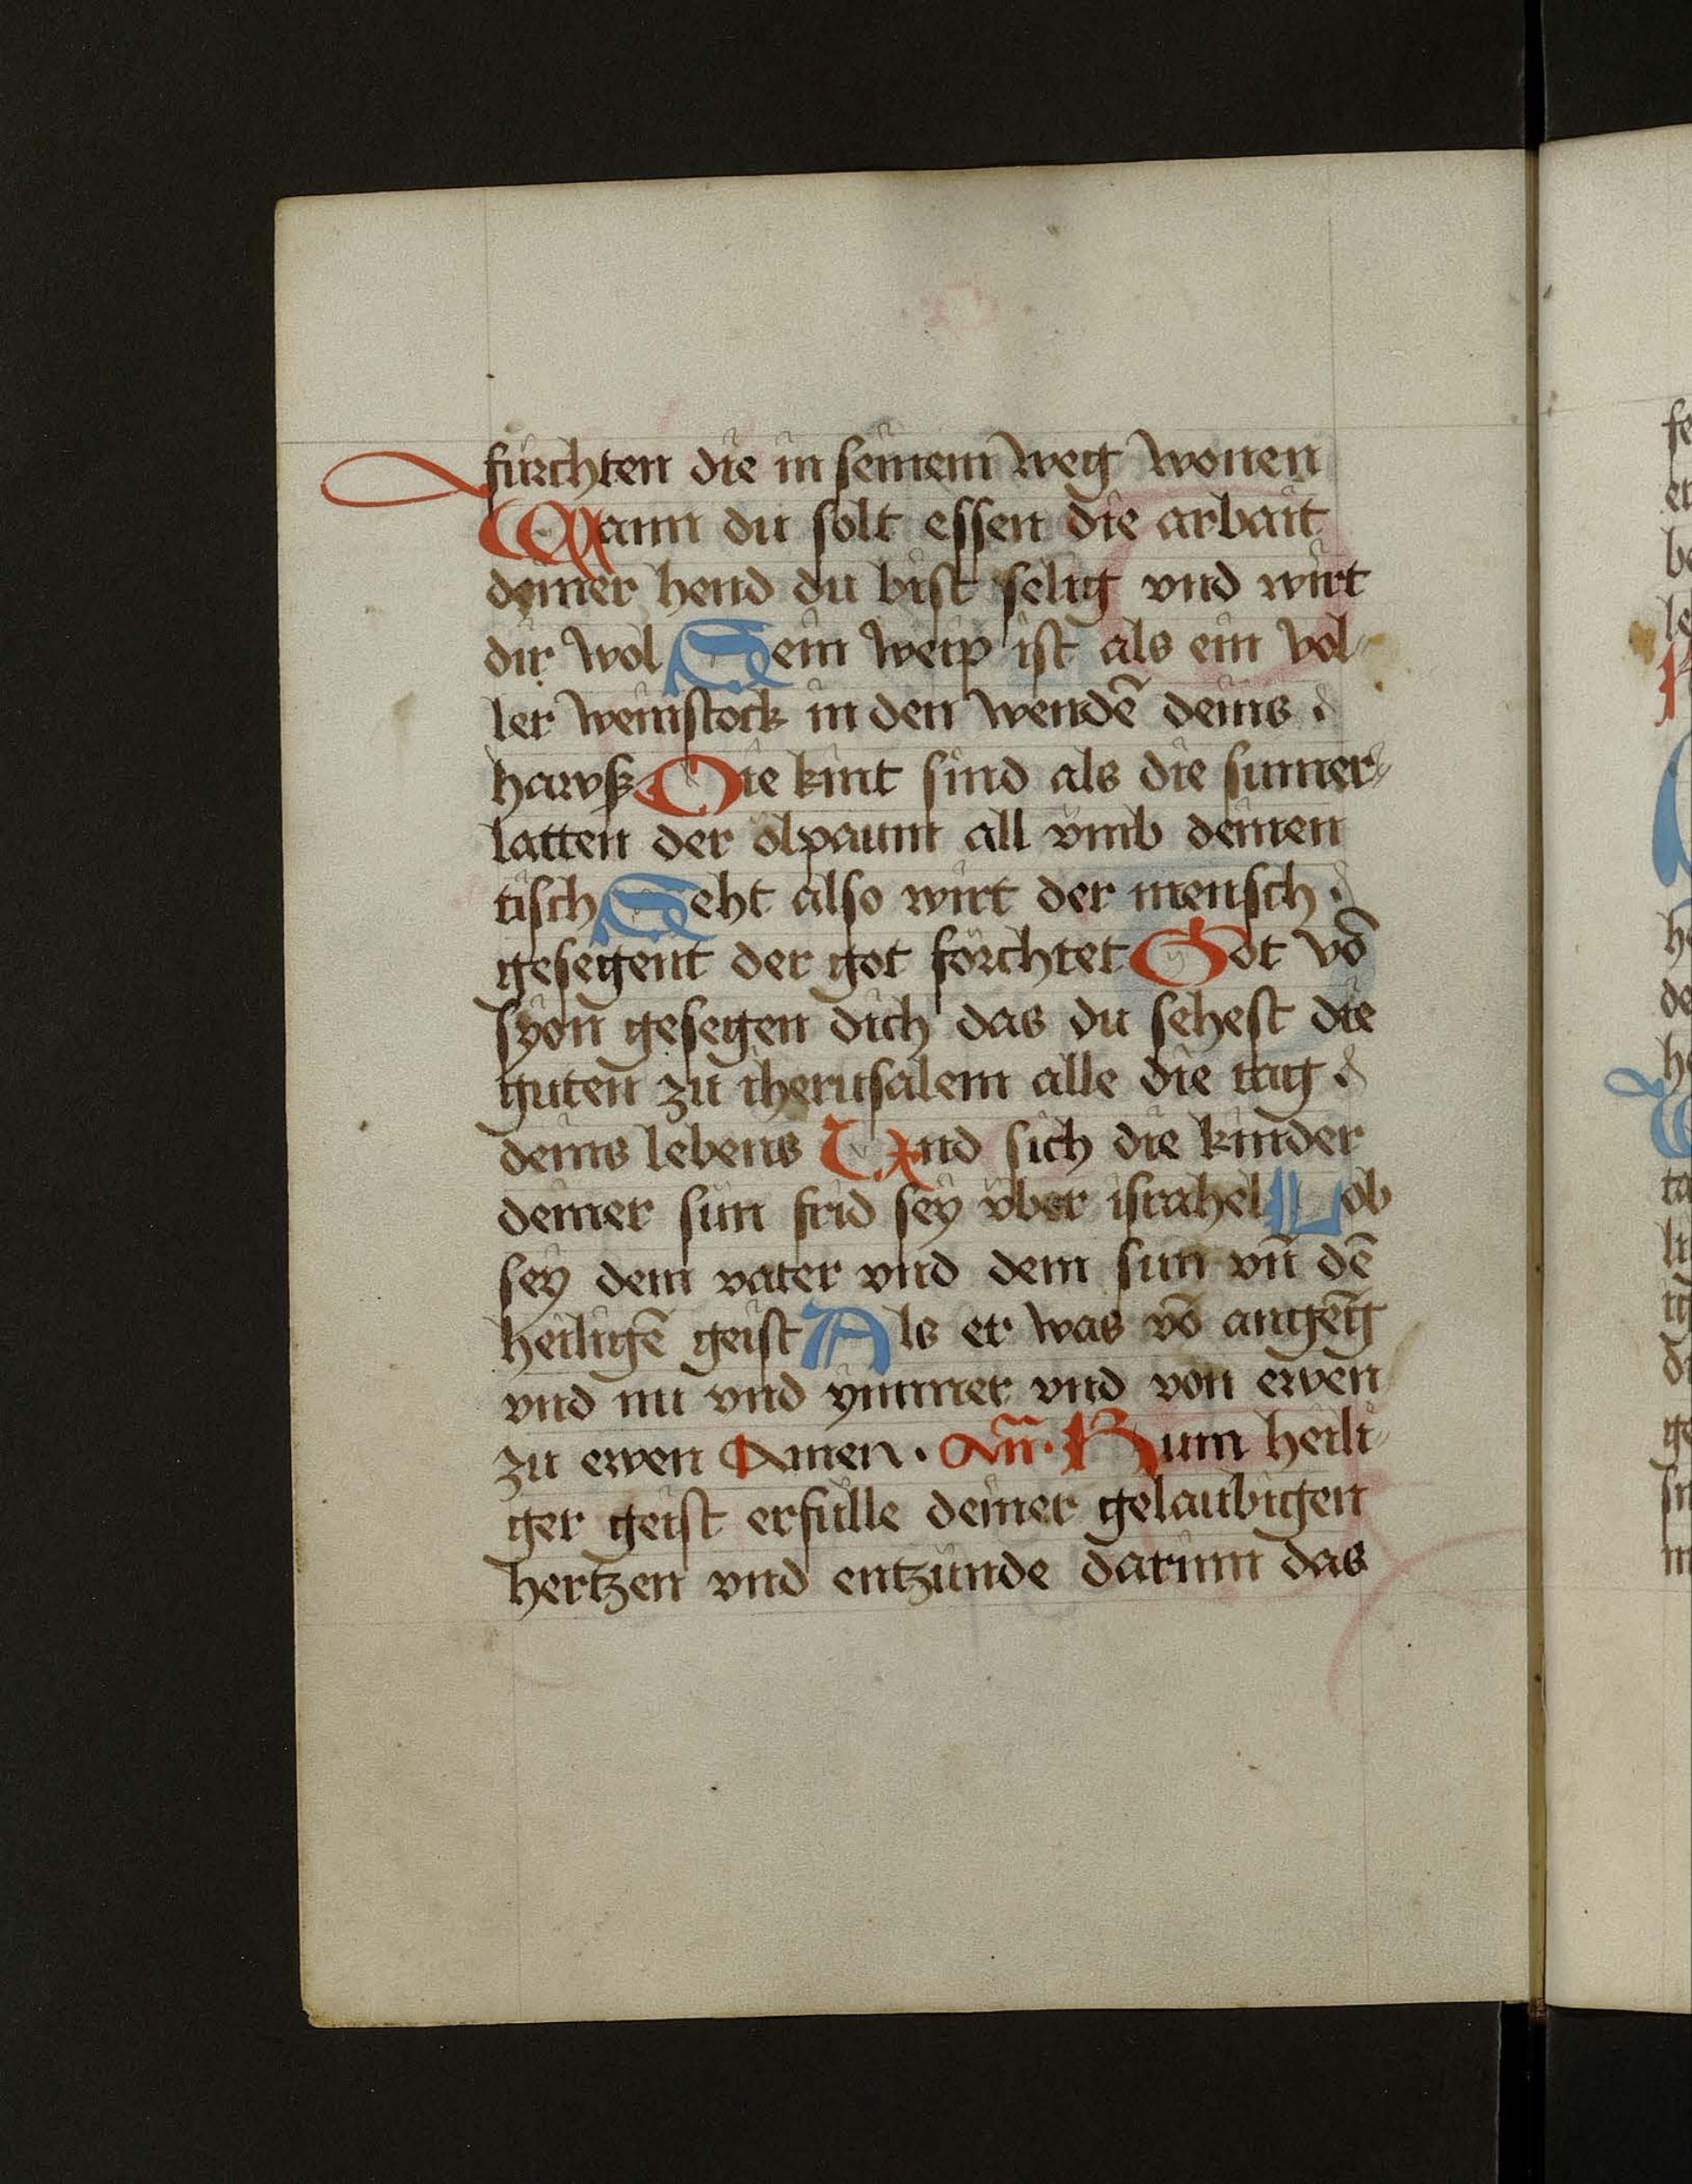 fürchten die in seinem weg wonen
Wann du solt essen die arbait
deiner hend du bist selig vnd wirt
dir wol Dein weip ist als ein vol-
ler weinstock in den wendē deins
hawß Die kint sind als die sumer-
latten der ölpaum all vmb deinen
tisch Seht also wirt der mensch
gesegent der got förchtet Got vō
syon gesegen dich das du sehest die
guten zu iherusalem alle die tag
deins lebens Vnd sich die kinder
deiner sün frid sey vber israhel Lob
sey dem vater vnd dem sun vn̄ dē
heiligē geist Als er was vō angēg
vnd nu vnd ymmer vnd von ewen
zu ewen Amen. An̄. Kum heili-
ger geist erfülle deiner gelaubigen
hertzen vnd entzünde darinn das